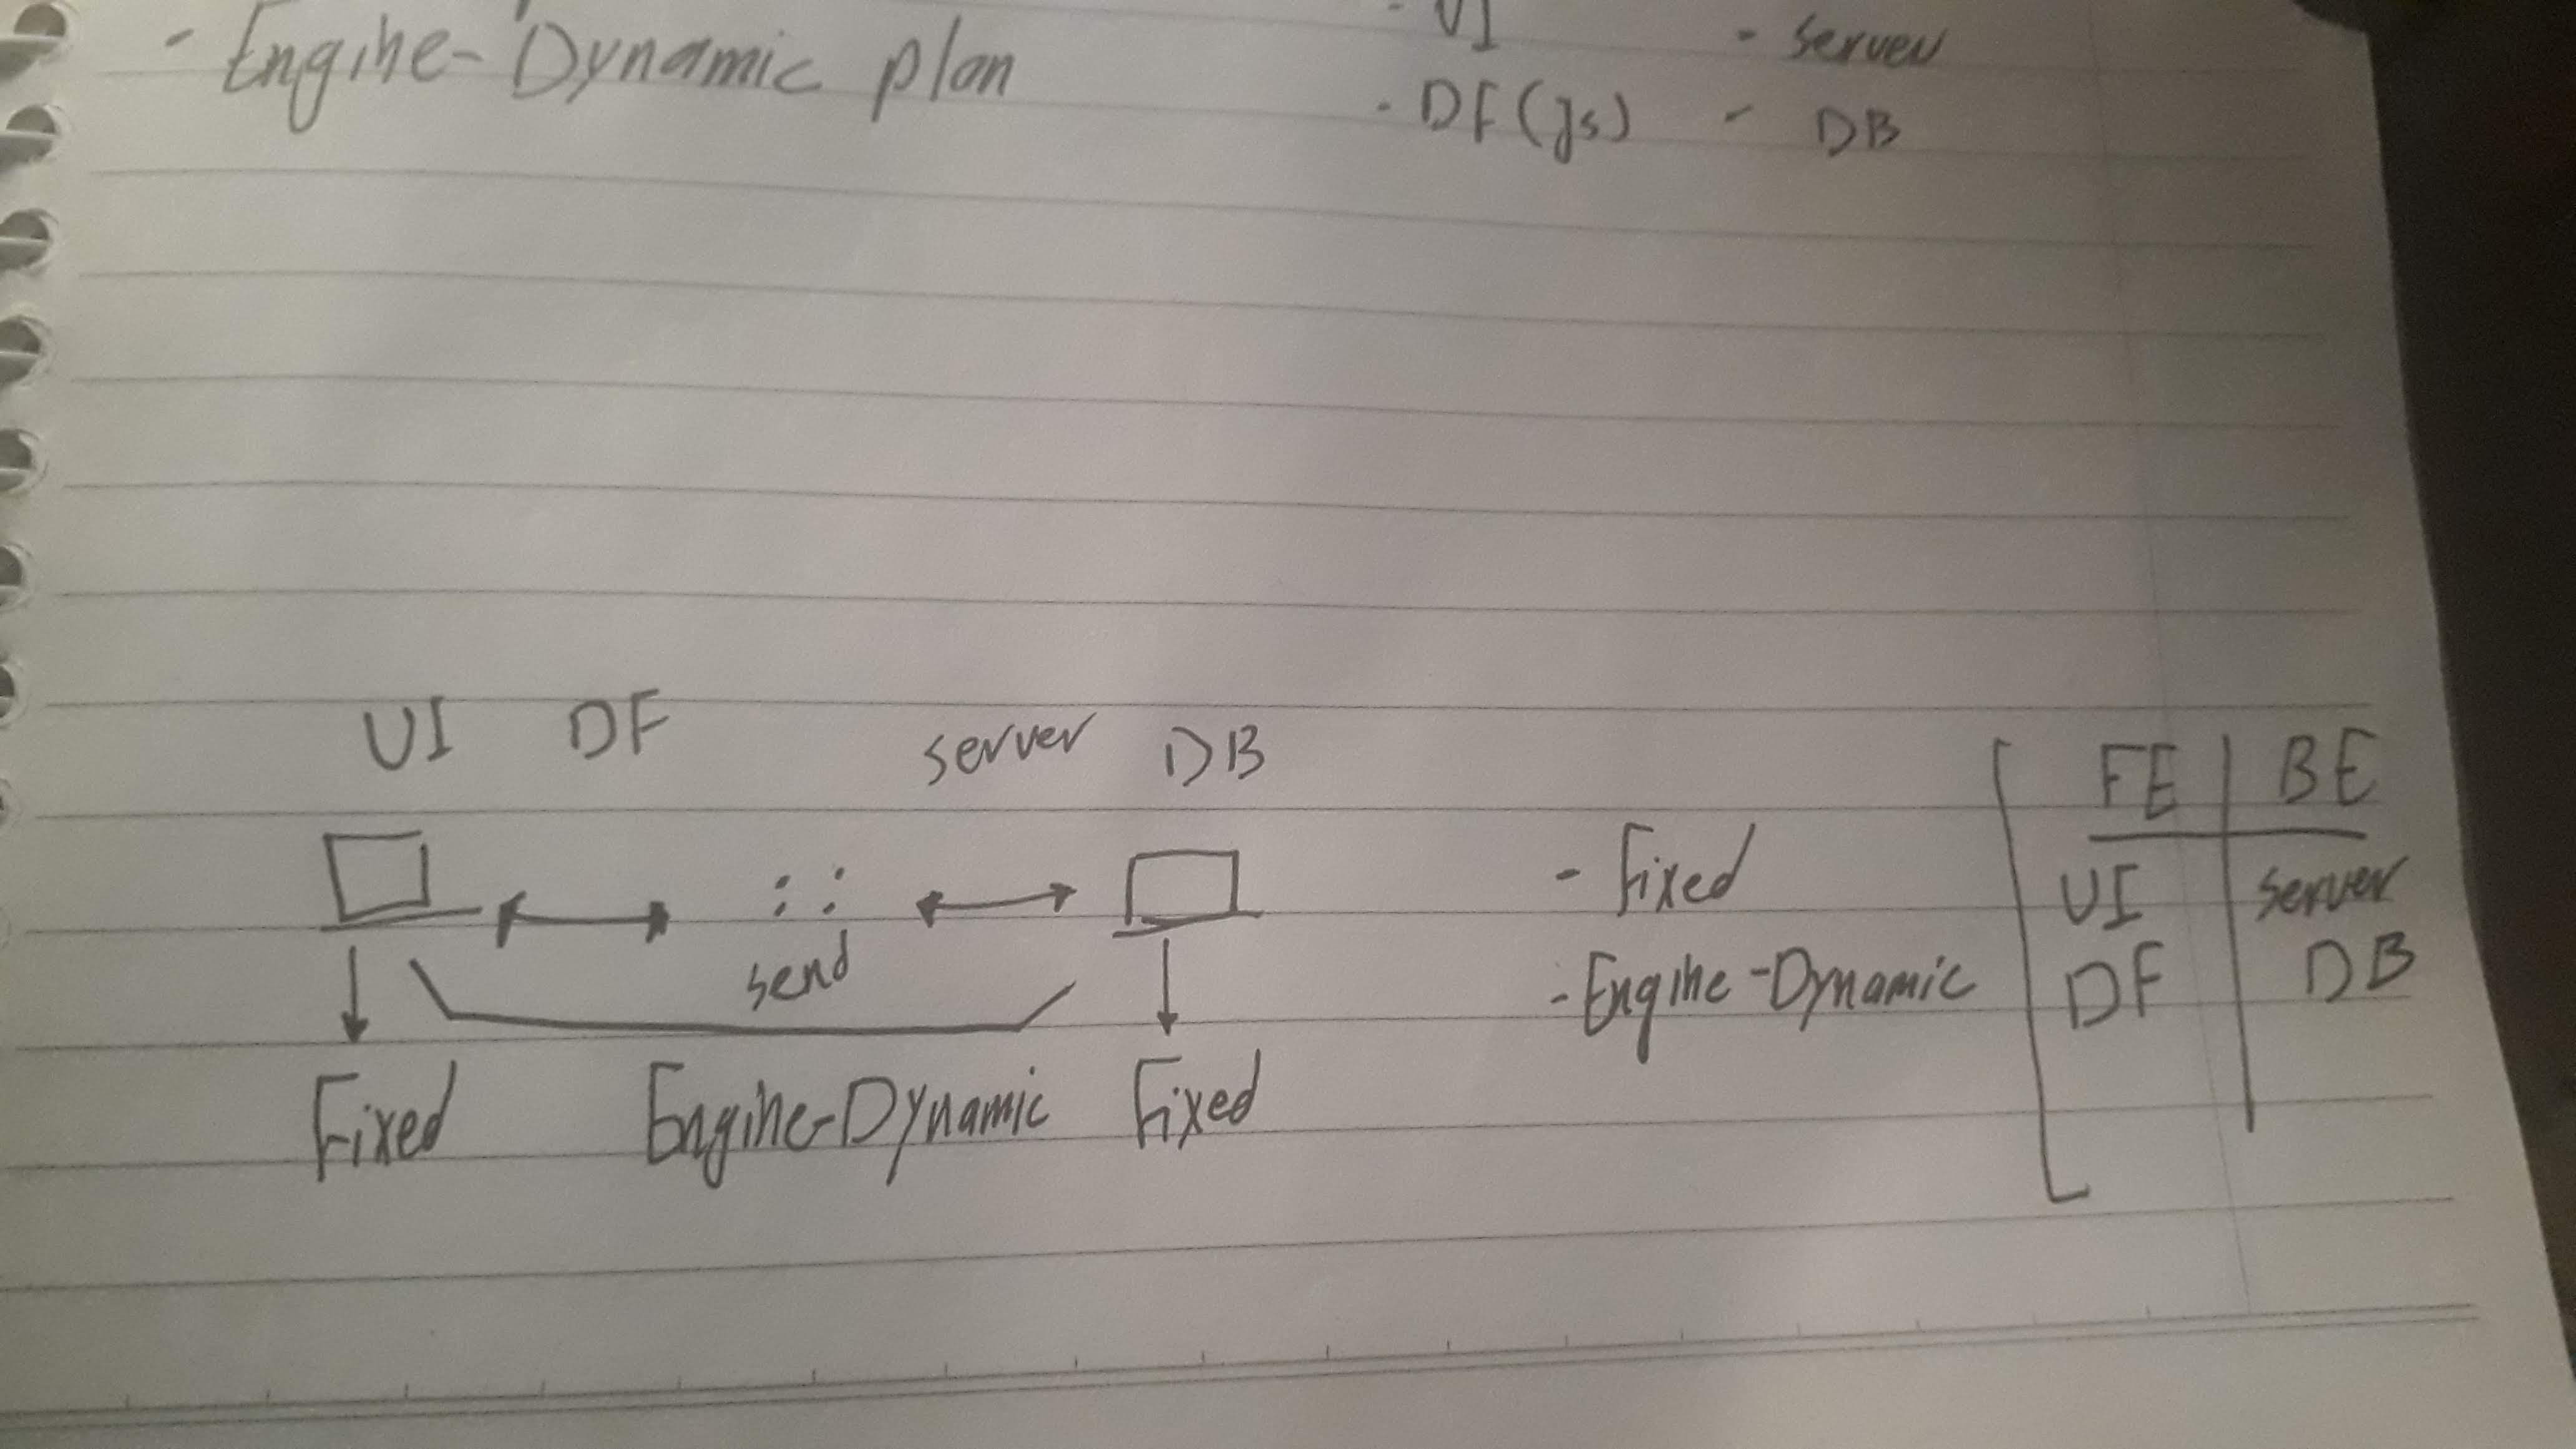 - Engine-Dynamic plan
- UI - Server
- DF (js) - DB
UI DF server DB
send
Fixed Engine-Dynamic Fixed
- Fixed
- Engine-Dynamic
FE BE
UI server
DF DB